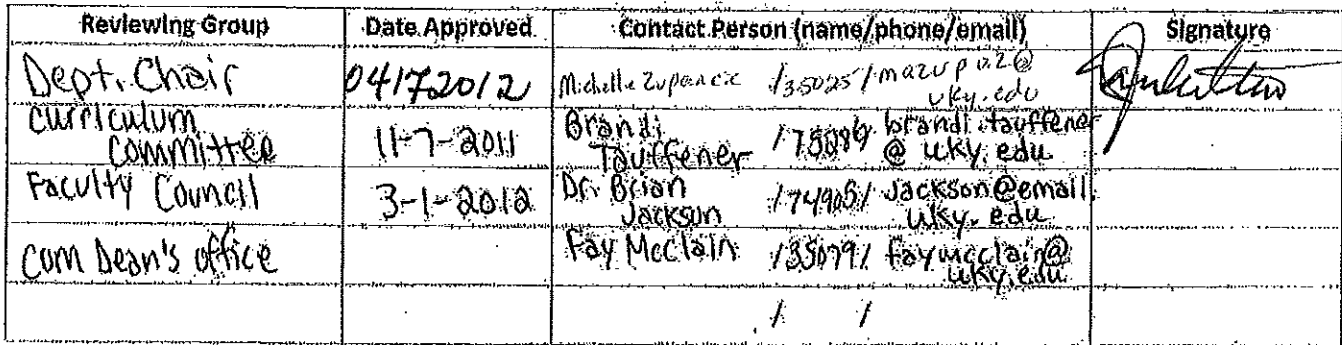 Reviewing Group Date Approved Contact Person (name/phone/email) Signature
Dept. Chair 04172012 Michelle /35025/ mazupa2@
uky.edu
curriculum Brandi brandi.tauffener
committee 11-7-2011 Tauffener @ uky.edu
Faculty Council 3-1-2012 Dr. Brian /74905/ jackson@email.
Jackson uky.edu
com Dean's office Fay McClain /35079/ faymcclain@
uky.edu
/ /